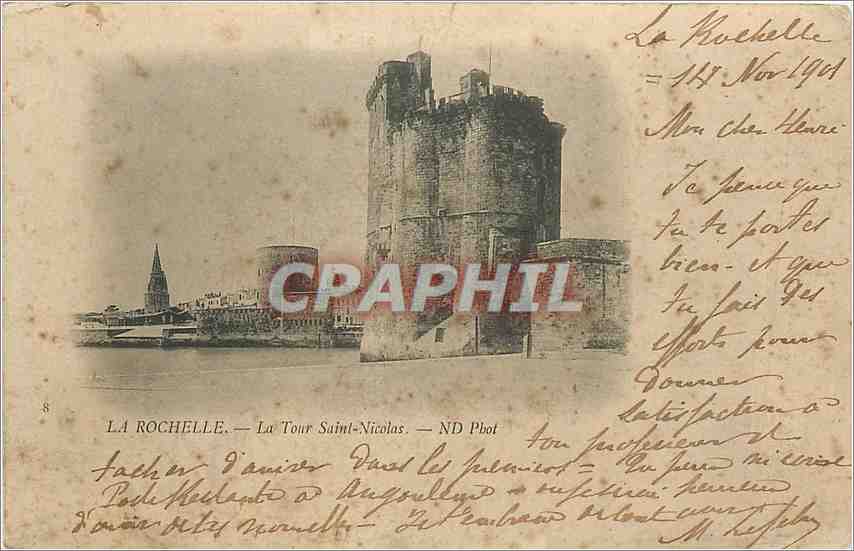 La Rochelle
= 14 Nov 1901
Mon cher Henri
Je pense que
tu te portes
bien - et que
tu fais des
efforts pour
donner
satisfaction à
ton professeur et
tacher d'arriver dans les premiers = Tu peux
Poste Restante à Angoulême
d'avoir de tes nouvelles - Je t'embrasse de tout
CPAPHIL
8
LA ROCHELLE. — La Tour Saint-Nicolas. — ND Phot